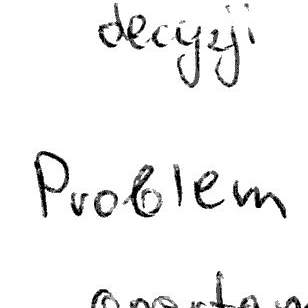 decyzji
Problem